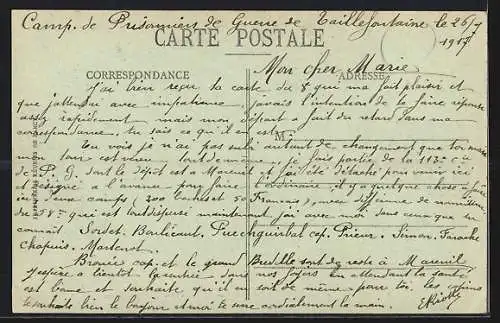 Camp. de Prisonniers de Guerre de Taillefontaine le 26/7
CARTE POSTALE 1917
Mon cher Marie
CORRESPONDANCE ADRESSE
J'ai bien reçu la carte du 8 qui m'a fait plaisir et
que j'attendai avec impatience, j'avais l'intention de te faire réponse
assez rapidement mais mon départ a fait du retard dans ma
correspondance, tu sais ce qu'il en est.
M
Tu vois je n'ai pas subi autant de changement que toi mais
mon tour est venu tout de même, je fais partie de la 113e Cie
de P. G. dont le dépôt est à Mareuil et j'ai été détaché pour venir ici
et désigné à l'avance pour faire l'ordinaire, il y a quelque chose à faire
ici deux camps (300 boches et 50 Français), avec officier de
du 58e qui est tout disposé maintenant, j'ai avec moi dans ceux que tu
connait Sordet, Puechguiral cap. Prieur, Simon,
Chapuis,
cap. et le grand Bedelle sont du reste à Mareuil
J'espère à bientôt la rentrée dans nos foyers. En attendant la santé
est bonne et souhaite qu'il en soit de même pour toi. les copains
te souhaite bien le bonjour et moi te serre cordialement la main.